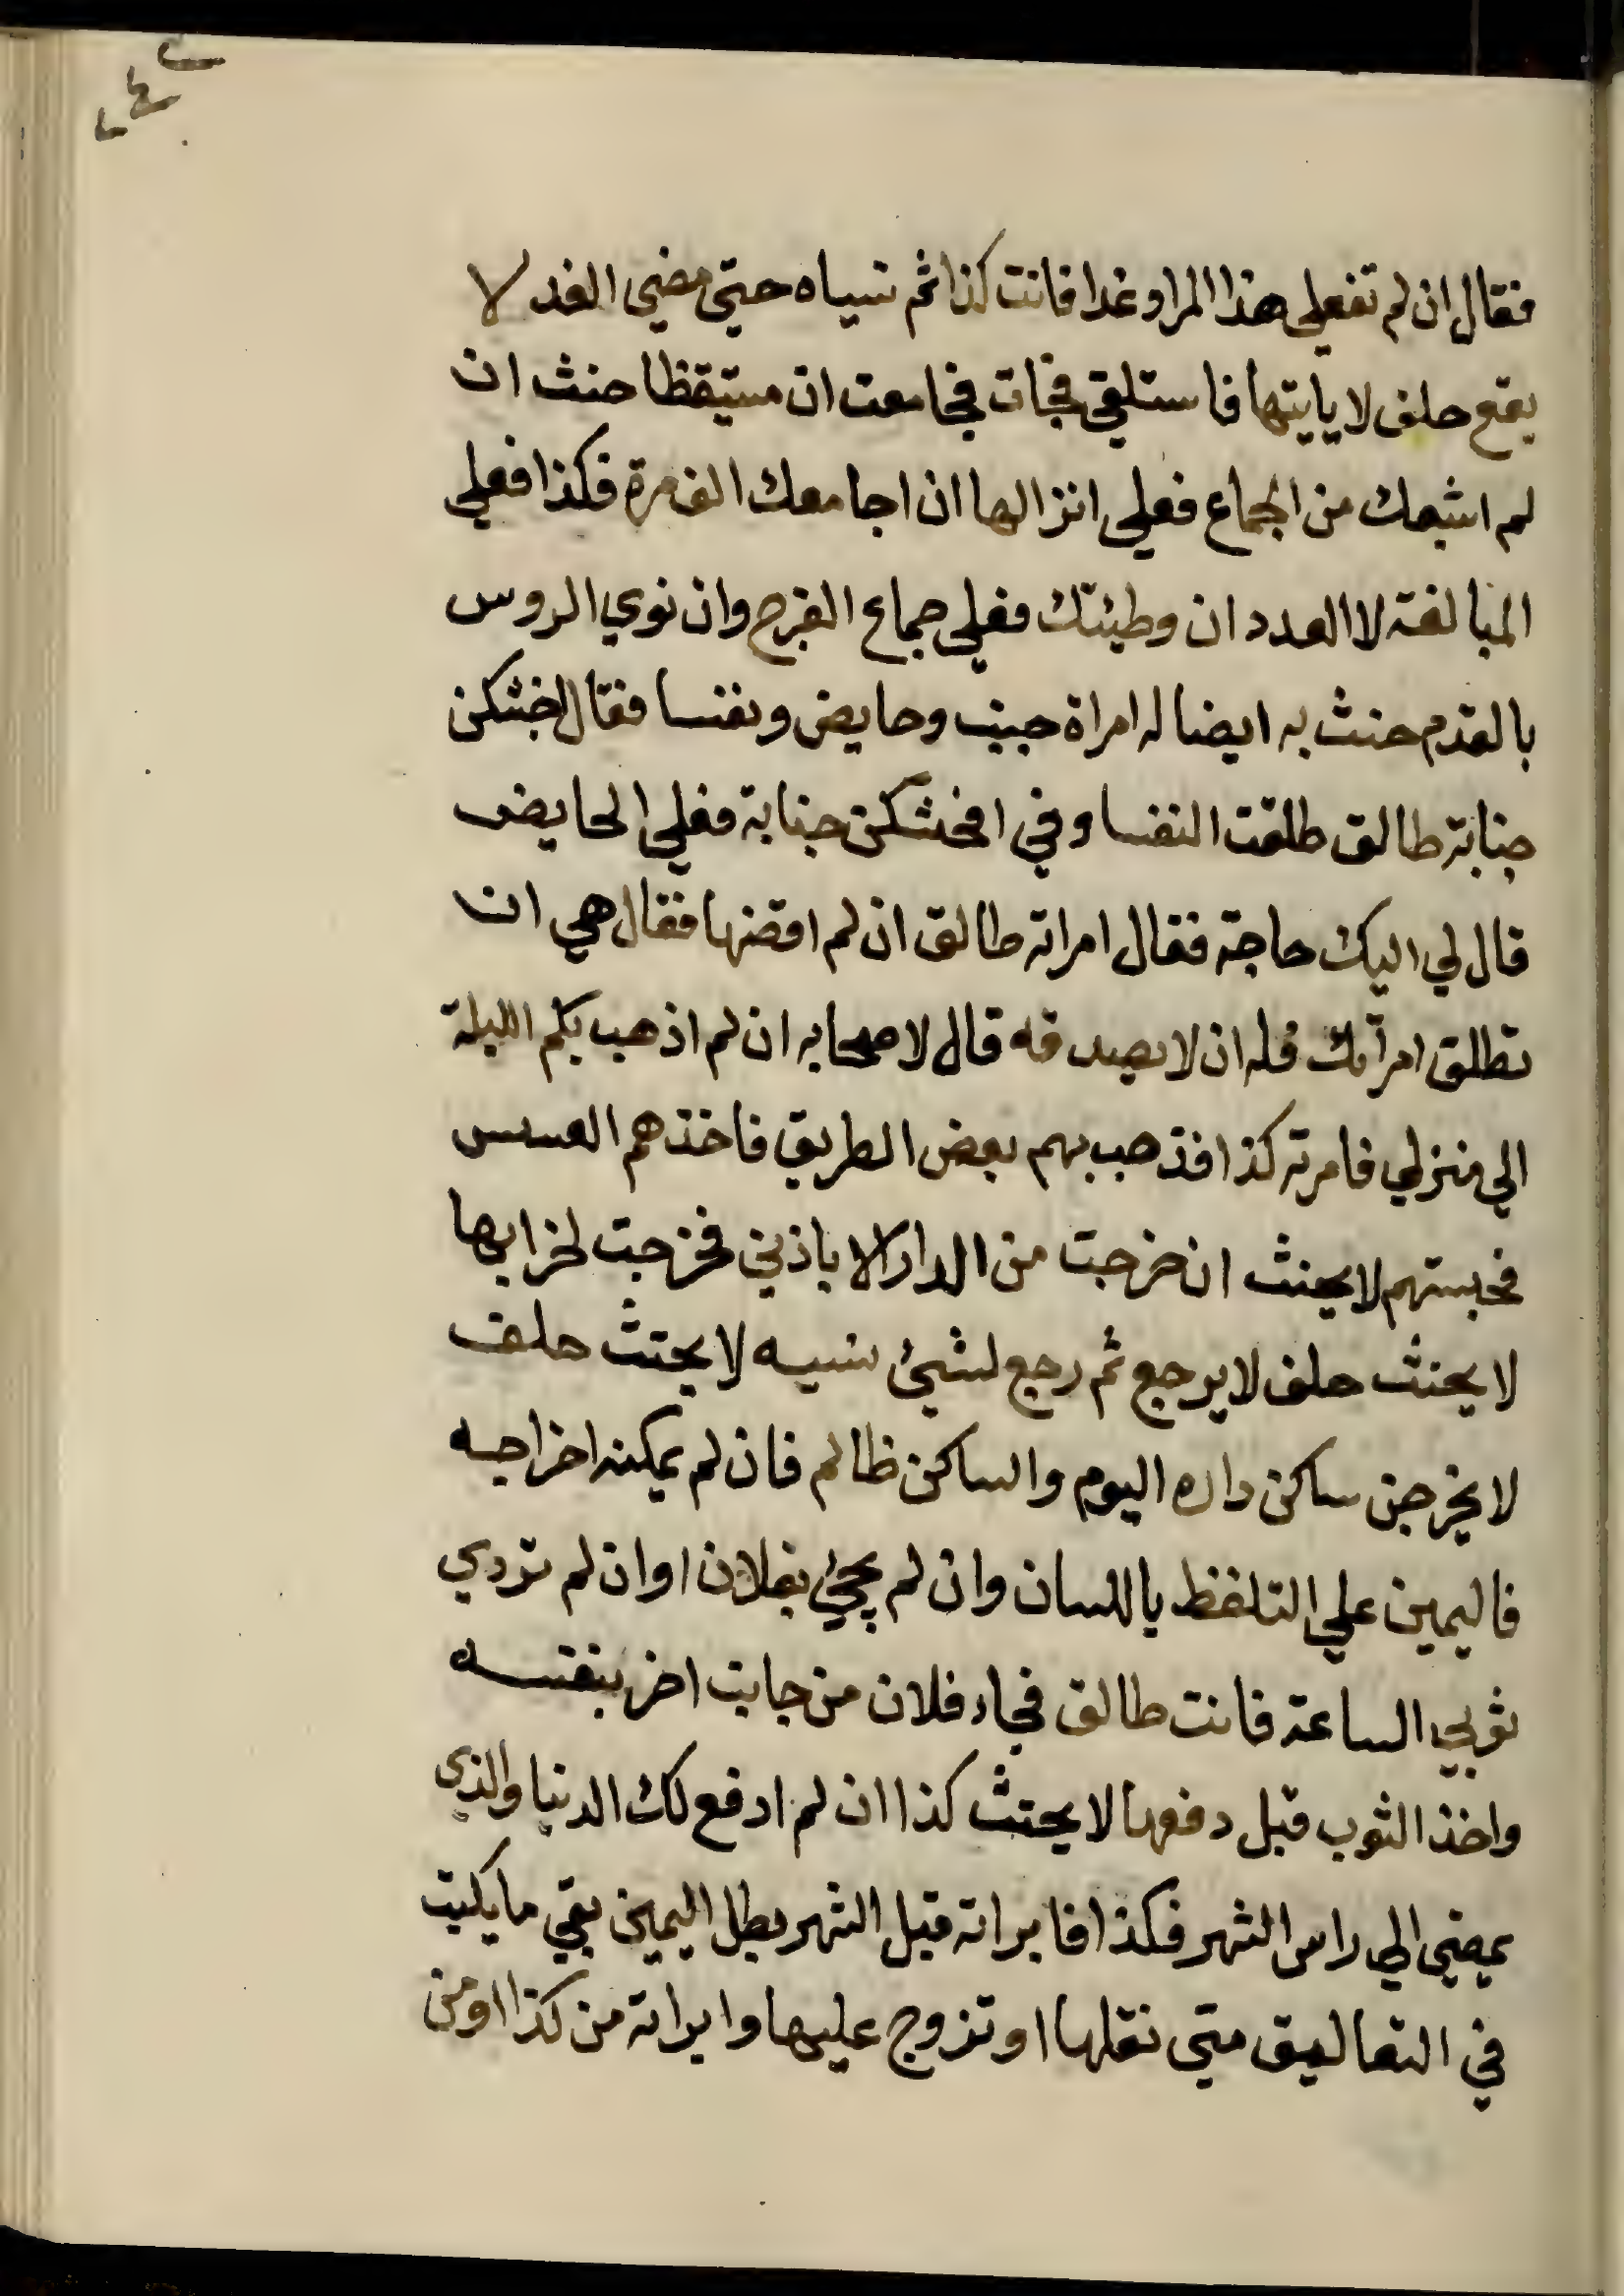 فقال ان لم تفعلي هذا المراد غدا فانت كذا ثم نسياه حتي مضي الغد لا
يقع حلف لا ياتيها فاستلقي فجات فجامعت ان مستيقظا حنث ان
لم اشبعك من الجماع فعلي انزالها ان اجامعك الف مرة فكذا فعلي
المبالغة لا العدد ان وطيتك فعلي جماع الفرج وان نوي الدوس
بالقدم حنث به ايضا له امراة جنب وحايض ونفسا فقال اخبثكن
جنابة طالق طلقت النفسا وفي افحشكن جنابة فعلي الحايض
قال لي اليك حاجة فقال امراته طالق ان لم اقضها فقال هي ان
تطلق امرآتك فله ان لا يصدقه قال لاصحابه ان لم اذهب بكم الليلة
الي منزلي فامرته كذا فذهب بهم بعض الطريق فاخذهم العسس
فحبستهم لا يحنث ان خرجت من الدار الا باذني فخرجت لخرابها
لا يحنث حلف لا يرجع ثم رجع لشيئ نسيه لا يحنث حلف
لا يخرجن ساكن داره اليوم والساكن ظالم فان لم يمكنه اخراجه
فاليمين علي التلفظ باللسان وان لم يجئ بفلان او ان لم تردي
ثوبي الساعة فانت طالق فجاء فلان من جانب اخر بنفسه
واخذ الثوب قبل دفعها لا يحنث كذا ان لم ادفع لك الدنيا والذي
يمضي الي راس الشهر فكذا فابراته قبل الشهر بطل اليمين بقي ما يكتب
في التعاليق متي نقلها او تزوج عليها وابراته من كذا او من